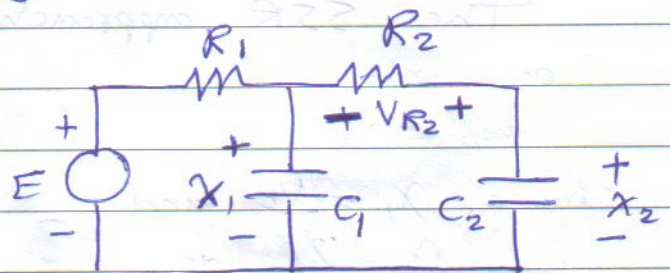 R₁ R₂
+ - V_R₂ +
+ +
E X₁ C₁ C₂ X₂
- - -